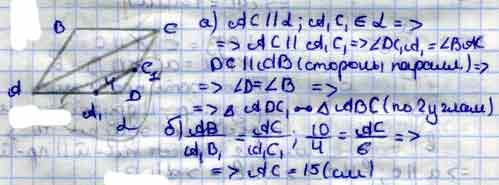 B C
A A₁ D 4 C₁ α
а) AC || α; A₁C₁ ∈ α =>
=> AC || A₁C₁ => ∠DC₁A₁ = ∠BAC
DC || AB (стороны паралл) =>
=> ∠D = ∠B =>
=> △ A₁DC₁ ∾ △ ABC (по 2 углам)
б) AB/A₁B₁ = AC/A₁C₁; 10/4 = AC/6 =>
=> AC = 15 (см)